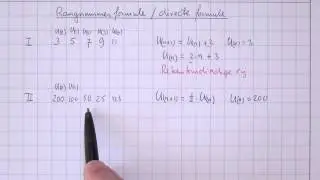 Rangnummer formule / directe formule
I
U(0) U(1) U(2) U(3) U(4)
3 5 7 9 11
U(n+1) = U(n) + 2 U(0) = 3
U(n) = 2·n + 3
Rekenkundige rij
II
U(0) U(1)
200 100 50 25 12,5
U(n+1) = ½ · U(n) U(0) = 200